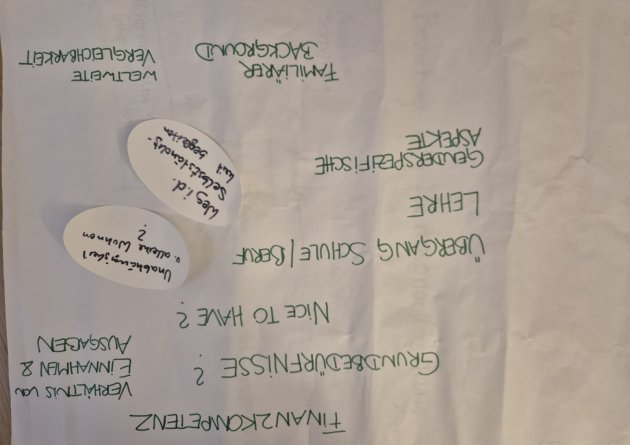 FINANZKOMPETENZ
VERHÄLTNIS von
EINNAHMEN &
AUSGABEN
GRUNDBEDÜRFNISSE ?
NICE TO HAVE ?
ÜBERGANG SCHULE/BERUF
Unabhängigkeit
v. alleine Wohnen
?
LEHRE
GENDERSPEZIFISCHE
ASPEKTE
Weg i.d.
Selbstständig-
keit begleiten
FAMILIÄRER
BACKGROUND
WELTWEITE
VERGLEICHBARKEIT